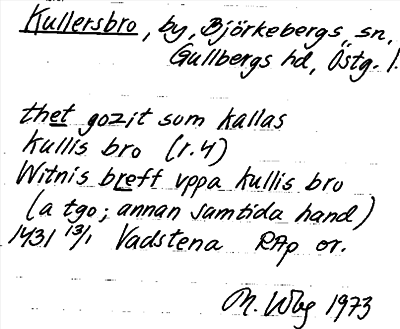 Kullersbro, by, Björkebergs sn,
Gullbergs hd, Östg. l.
thet gozit sum kallas
kullis bro (r.4)
Witnis breff vppa kullis bro
(a tgo; annan samtida hand)
1431 13/1 Vadstena RAp or.
M. Wbg 1973